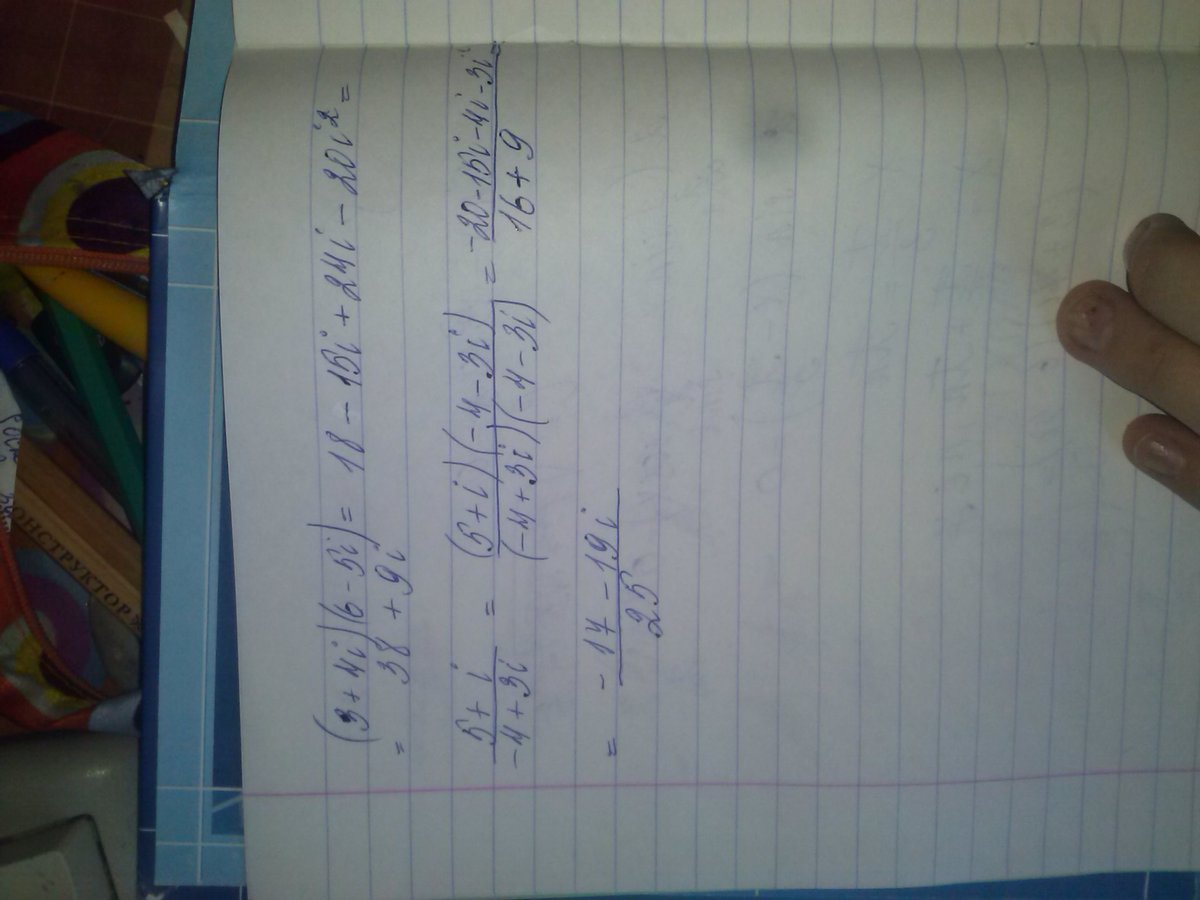 (3+4i)(6-5i) = 18 - 15i + 24i - 20i² =
= 38 + 9i
5+i/-4+3i = (5+i)(-4-3i)/(-4+3i)(-4-3i) = -20-15i-4i-3i²/16+9 =
= -17-19i/25
КОНСТРУКТОР